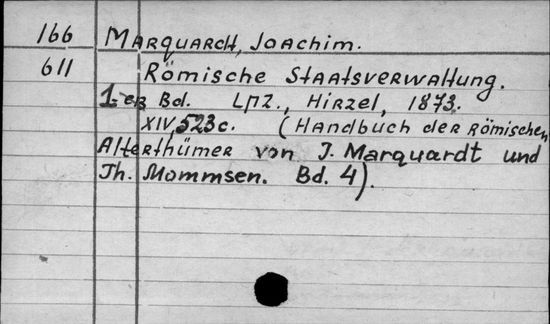 166 MARQUARCH, JOACHIM.
611 RÖMISCHE STAATSVERWALTUNG.
1-er Bd. LPZ., HIRZEL, 1873.
XIV 523 c. (HANDBUCH DER RÖMISCHEN
ALTERTHÜMER von J. Marquardt und
Th. Mommsen. Bd. 4).